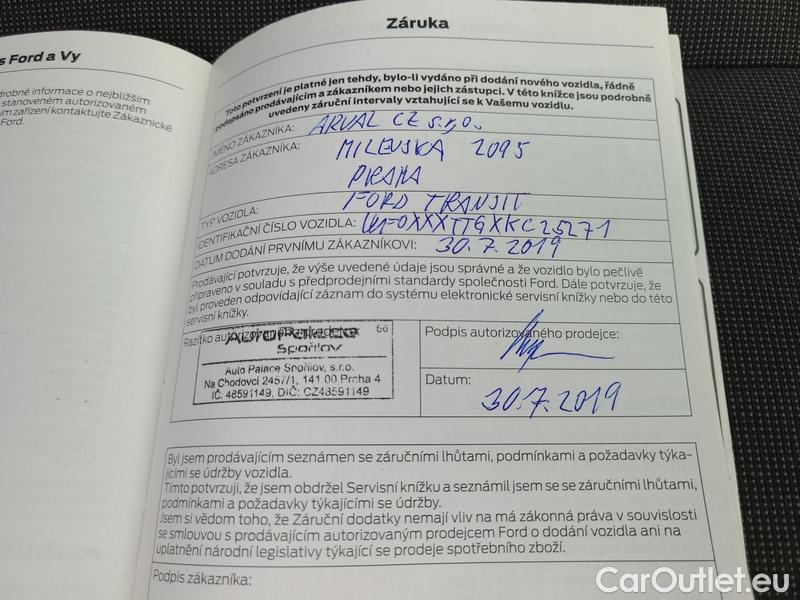 s Ford a Vy
drobné informace o nejbližším
stanoveném autorizovaném
m zařízení kontaktujte Zákaznické
Ford.
Záruka
Toto potvrzení je platné jen tehdy, bylo-li vydáno při dodání nového vozidla, řádně
podepsáno prodávajícím a zákazníkem nebo jejich zástupci. V této knížce jsou podrobně
uvedeny záruční intervaly vztahující se k Vašemu vozidlu.
JMÉNO ZÁKAZNÍKA: ARVAL CZ s.r.o.
ADRESA ZÁKAZNÍKA: MILEVSKA 2095
PRAHA
TYP VOZIDLA: FORD TRANSIT
IDENTIFIKAČNÍ ČÍSLO VOZIDLA: WF0XXXTTGXKC25271
DATUM DODÁNÍ PRVNÍMU ZÁKAZNÍKOVI: 30.7.2019
Prodávající potvrzuje, že výše uvedené údaje jsou správné a že vozidlo bylo pečlivě
připraveno v souladu s předprodejními standardy společnosti Ford. Dále potvrzuje, že
byl proveden odpovídající záznam do systému elektronické servisní knížky nebo do této
servisní knížky.
Razítko autorizovaného prodejce
66
AUTO PALACE
Spořilov
Auto Palace Spořilov, s.r.o.
Na Chodovci 2457/1, 141 00 Praha 4
IČ: 48591149, DIČ: CZ48591149
Podpis autorizovaného prodejce:
Datum:
30.7.2019
Byl jsem prodávajícím seznámen se záručními lhůtami, podmínkami a požadavky týka-
jícími se údržby vozidla.
Tímto potvrzuji, že jsem obdržel Servisní knížku a seznámil jsem se se záručními lhůtami,
podmínkami a požadavky týkajícími se údržby.
Jsem si vědom toho, že Záruční dodatky nemají vliv na má zákonná práva v souvislosti
se smlouvou s prodávajícím autorizovaným prodejcem Ford o dodání vozidla ani na
uplatnění národní legislativy týkající se prodeje spotřebního zboží.
Podpis zákazníka:
CarOutlet.eu